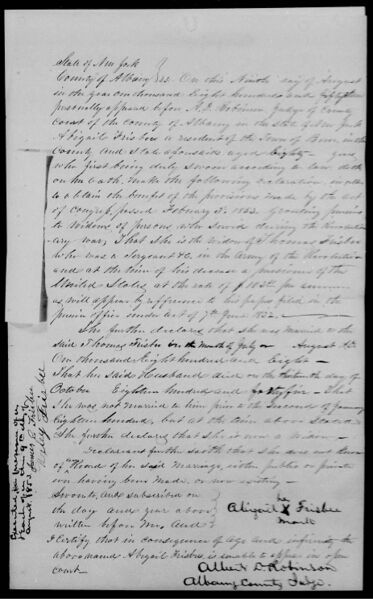 State of New York
County of Albany ss. On this Ninth day of August
in the year one thousand Eight hundred and fifty
personally appeared before A. D. Robinson Judge of County
Court of the County of Albany in the State of New York
Abigail Frisbee a resident of the Town of Bern in the
County and State aforesaid aged Eighty years
who first being duly sworn according to law doth
on her oath make the following declaration, in order
to obtain the benefit of the provisions made by the act
of Congress, passed February 3d, 1853. Granting pensions
to widows of persons who served during the Revolution
ary war, That she is the widow of Thomas Frisbee
who was a Sergeant &c. in the Army of the Revolution
and at the time of his decease a pensioner of the
United States, at the rate of $ per annum
as will appear by reference to his papers filed in the
pension office under act of 7th June 1832.
She further declares that she was married to the
said Thomas Frisbee in the month of July or August AD.
One thousand Eight hundred and Eight
That her said Husband died on the day of
October Eighteen hundred and forty five - That
she was not married to him prior to the second of January
Eighteen hundred, but at the time above stated
She further declares that she is now a Widow
Declarant further saith that she does not know
of record of her said marriage, either public or private
ever having been made, or now existing
Sworn to and subscribed on
the day and year above
written before me. And
her
Abigail X Frisbee
mark
I certify that in consequence of age and infirmity the
above named Abigail Frisbee is unable to appear in open
court.
Albert D Robinson
Albany County Judge.
Executed in presence of
August 1853
Frisbee
Frisbee